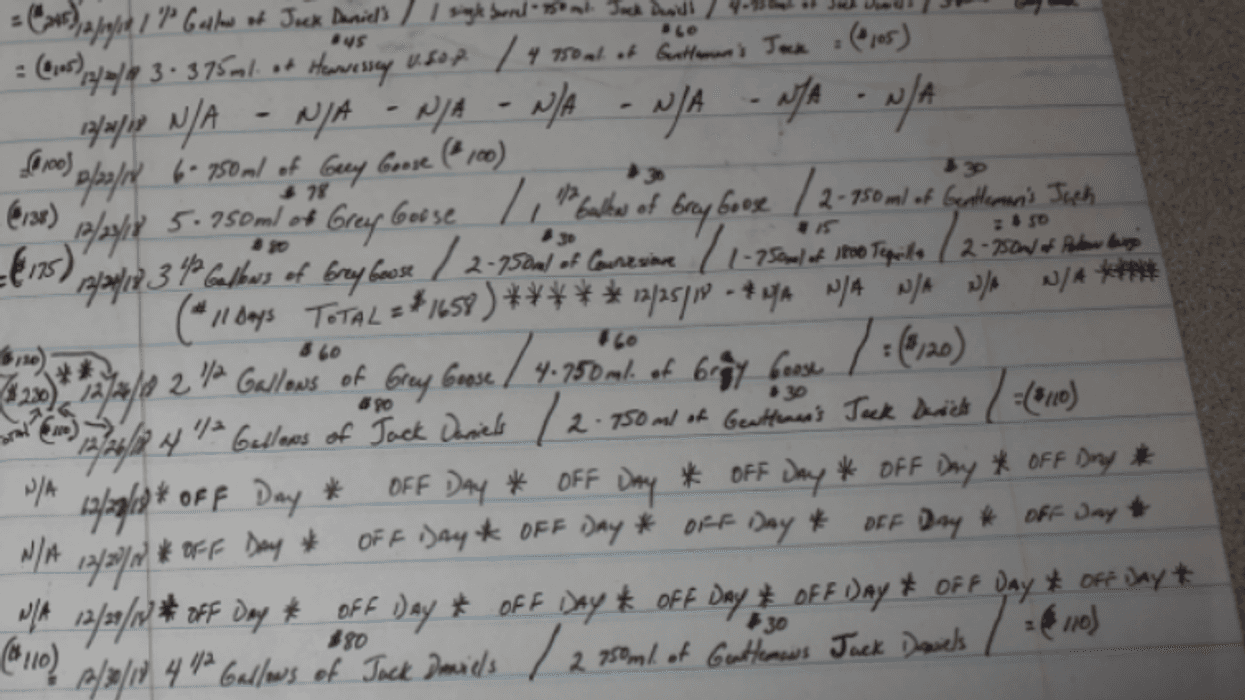 = ($245) 12/19/18 1 1/2 Gallon of Jack Daniel's / 1 single barrel - 750 ml. Jack Daniels / 4-750ml of Jack Daniels /
$45 $60
= ($105) 12/20/18 3 - 375ml. of Hennessey V.S.O.P. / 4 750ml. of Gentleman's Jack = ($105)
12/21/18 N/A - N/A - N/A - N/A - N/A - N/A - N/A
=($100) 12/22/18 6 - 750ml of Grey Goose ($100)
$78 $30 $30
($138) 12/23/18 5 - 750ml of Grey Goose / 1 1/2 Gallon of Grey Goose / 2 - 750ml of Gentleman's Jack
$80 $30 $15 = $50
=($175) 12/24/18 3 1/2 Gallons of Grey Goose / 2-750ml of / 1-750ml of 1800 Tequila / 2-750ml of
(# 11 Days TOTAL = $1658) ***** 12/25/18 - * N/A N/A N/A N/A N/A *****
$60 $60
($120) ** 12/26/18 2 1/2 Gallons of Grey Goose / 4-750ml. of Grey Goose / = ($120)
($230)
$80 $30
total ($110) 12/26/18 4 1/2 Gallons of Jack Daniels / 2 - 750ml of Gentleman's Jack Daniels / =($110)
N/A 12/27/18 * OFF Day * OFF Day * OFF Day * OFF Day * OFF Day * OFF Day *
N/A 12/28/18 * OFF Day * OFF Day * OFF Day * OFF Day * OFF Day * OFF Day *
N/A 12/29/18 * OFF Day * OFF Day * OFF Day * OFF Day * OFF Day * OFF Day * OFF Day *
$80 $30
($110) = 12/30/18 4 1/2 Gallons of Jack Daniels / 2 750ml. of Gentlemans Jack Daniels / = ($110)